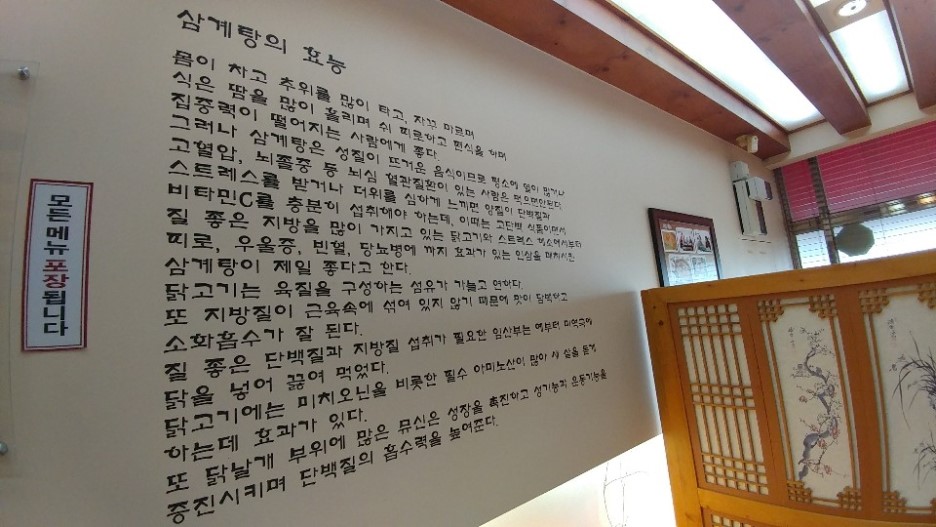 삼계탕의 효능
몸이 차고 추위를 많이 타고, 자꾸 마르며
식은 땀을 많이 흘리며 쉬 피로하고 편식을 하며
집중력이 떨어지는 사람에게 좋다.
그러나 삼계탕은 성질이 뜨거운 음식이므로 평소에 열이 많거나
고혈압, 뇌졸중 등 뇌심 혈관질환이 있는 사람은 먹으면안된다.
스트레스를 받거나 더위를 심하게 느끼면 양질이 단백질과
비타민C를 충분히 섭취해야 하는데, 이때는 고단백 식품이면서
질 좋은 지방을 많이 가지고 있는 닭고기와 스트레스 해소에서부터
피로, 우울증, 빈혈, 당뇨병에 까지 효과가 있는 인삼을 매치시킨
삼계탕이 제일 좋다고 한다.
닭고기는 육질을 구성하는 섬유가 가늘고 연하다.
또 지방질이 근육속에 섞여 있지 않기 때문에 맛이 담백하고
소화흡수가 잘 된다.
질 좋은 단백질과 지방질 섭취가 필요한 임산부는 예부터 미역국에
닭을 넣어 끓여 먹었다.
닭고기에는 미치오닌을 비롯한 필수 아미노산이 많아 새 살을 돋게
하는데 효과가 있다.
또 닭날개 부위에 많은 뮤신은 성장을 촉진하고 성기능과 운동기능을
증진시키며 단백질의 흡수력을 높여준다.
모든메뉴포장됩니다